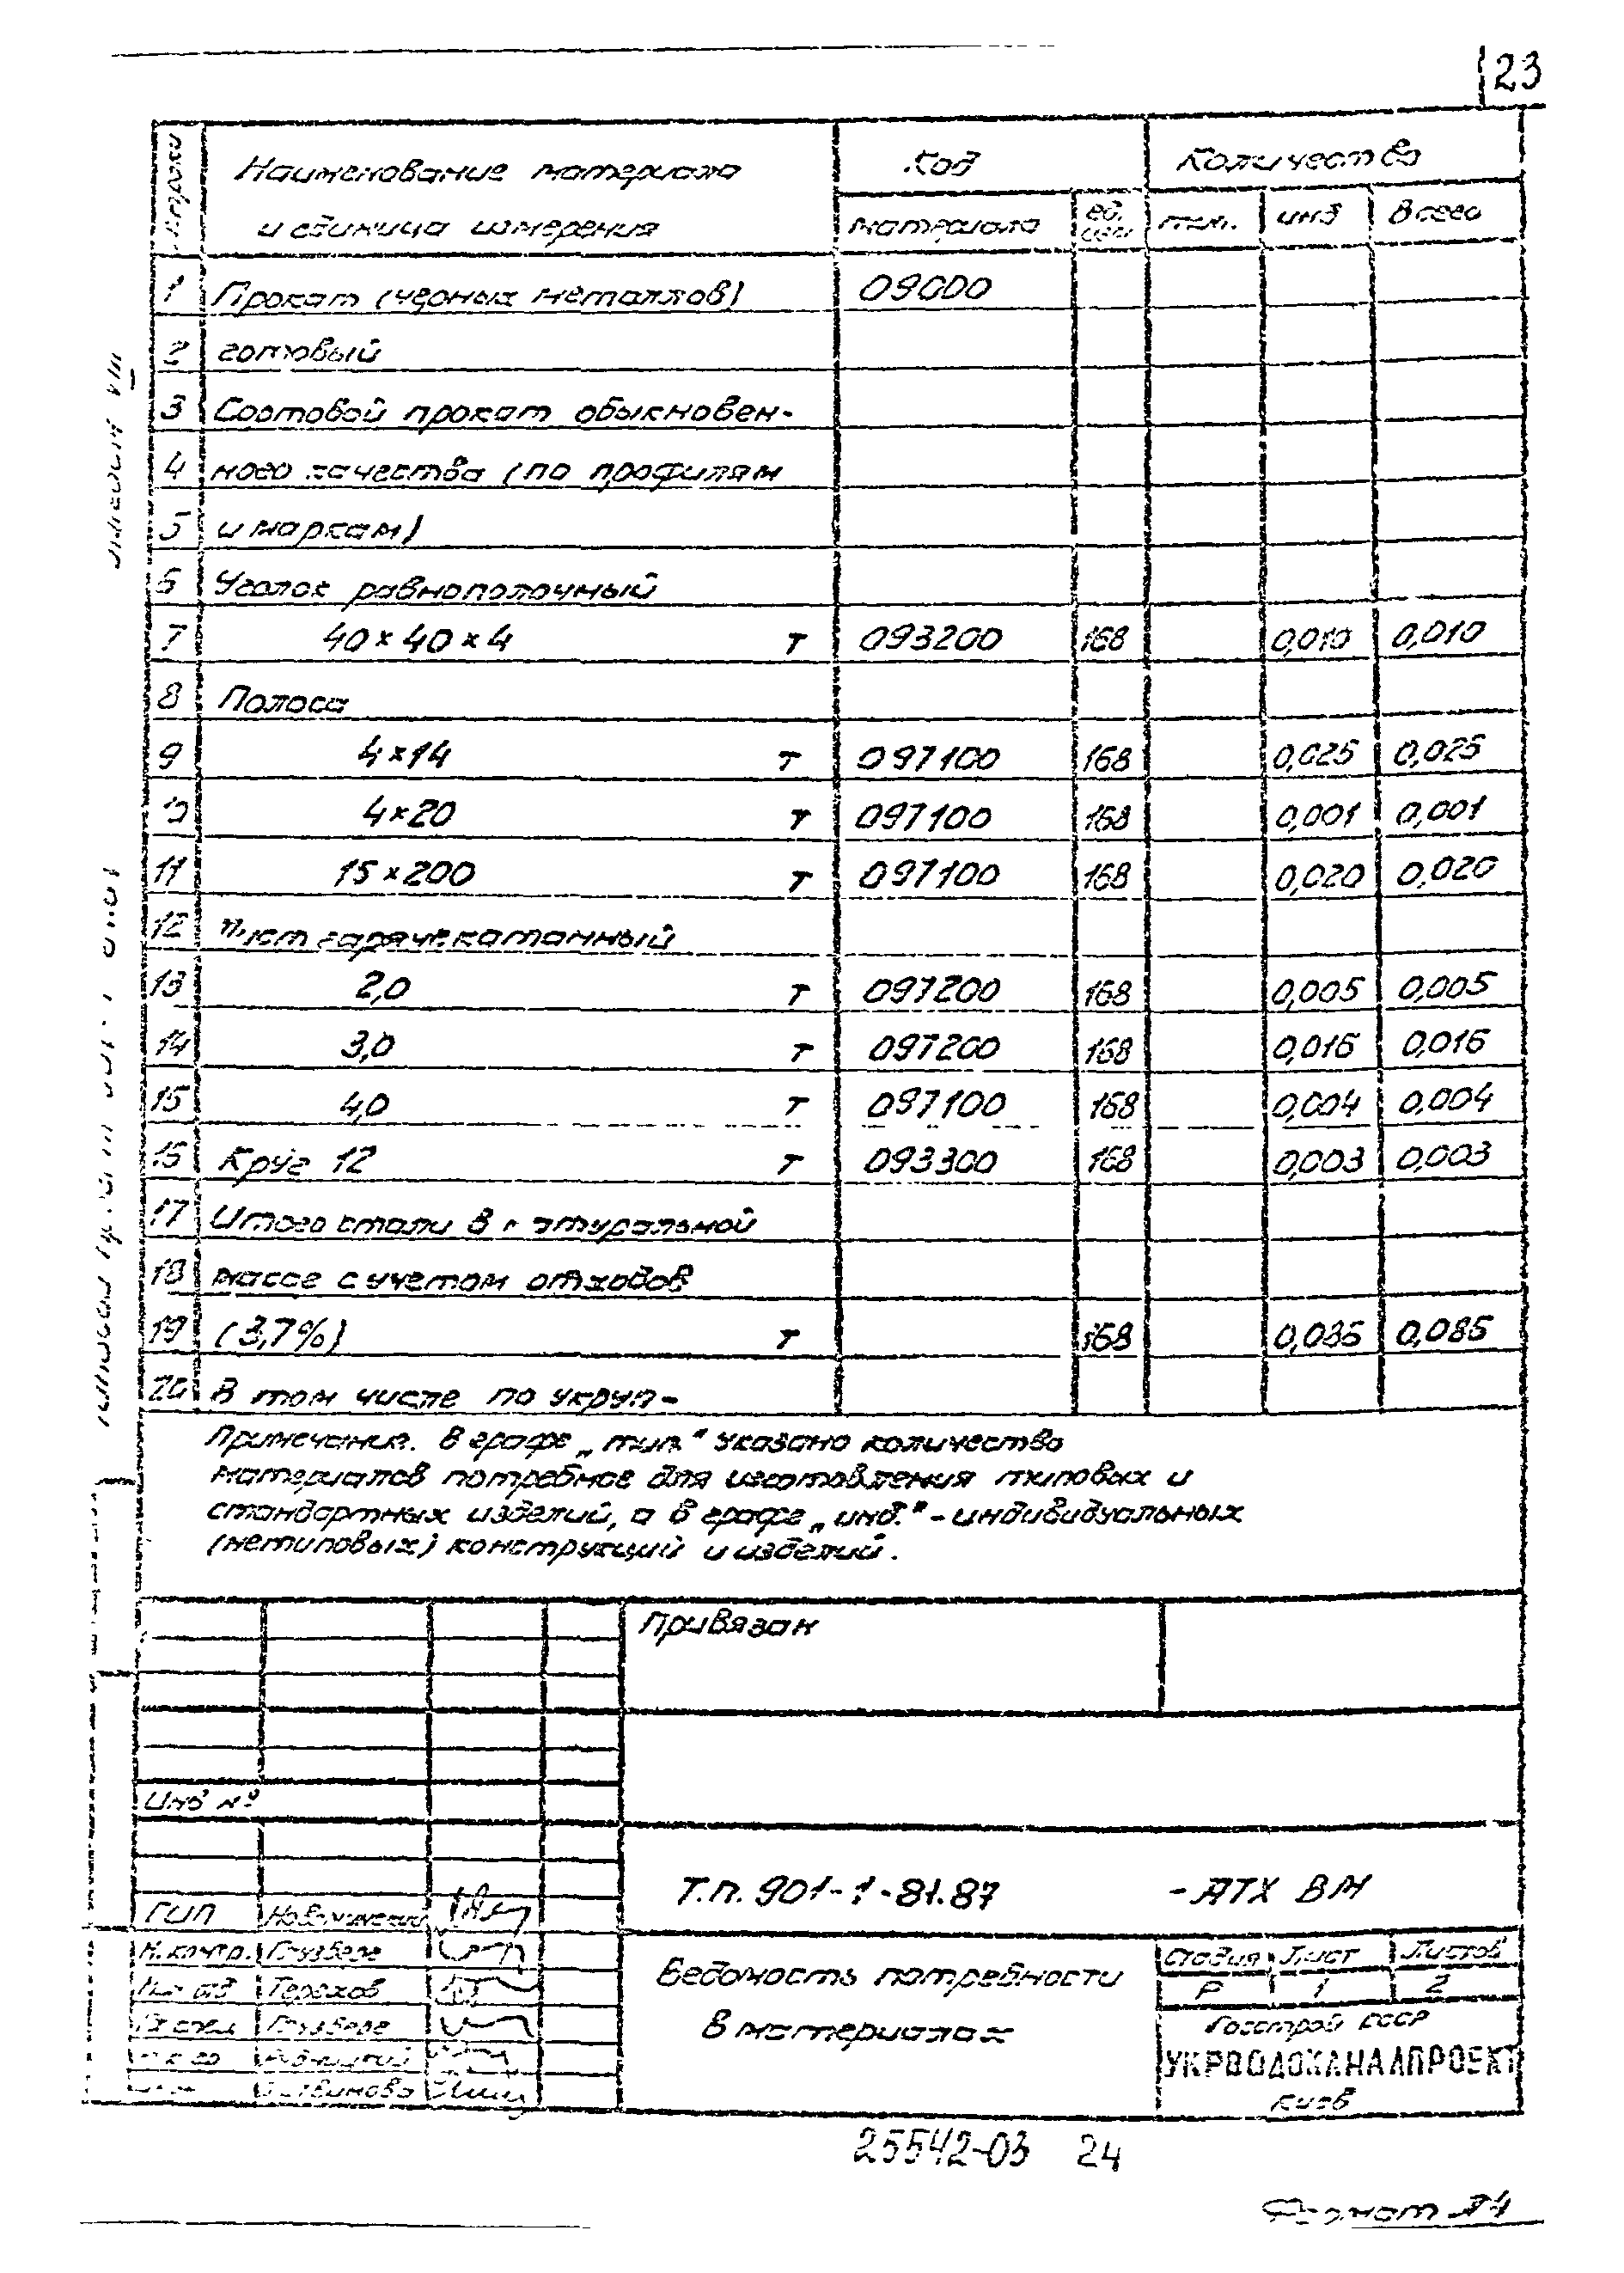 23
Наименование материала
и единица измерения
Код
Количество
материала
ед. изм
тип.
инд
Всего
1 Прокат (черных металлов) 09000
2 готовый
3 Сортовой прокат обыкновен-
4 ного качества (по профилям
5 и маркам)
6 Уголок равнополочный
7 40×40×4 т 093200 168 0,010 0,010
8 Полоса
9 4×14 т 097100 168 0,025 0,025
10 4×20 т 097100 168 0,001 0,001
11 15×200 т 097100 168 0,020 0,020
12 Лист горячекатанный
13 2,0 т 097200 168 0,005 0,005
14 3,0 т 097200 168 0,016 0,016
15 4,0 т 097100 168 0,004 0,004
16 Круг 12 т 093300 168 0,003 0,003
17 Итого стали в натуральной
18 массе с учетом отходов
19 (3,7%) т 168 0,085 0,085
20 В том числе по укруп-
Примечание. В графе „тип." указано количество
материалов потребное для изготовления типовых и
стандартных изделий, а в графе „инд." - индивидуальных
(нетиповых) конструкций и изделий.
Привязан
Инв №
Т.п. 901-1-81.87 -АТХ ВМ
ГИП
Н.контр. Глузберг
Терехов
Гл спец Глузберг
Ведомость потребности
в материалах
Стадия Лист Листов
Р 1 2
Госстрой СССР
УКРВОДОКАНАЛПРОЕКТ
Киев
25542-03 24
Формат А4